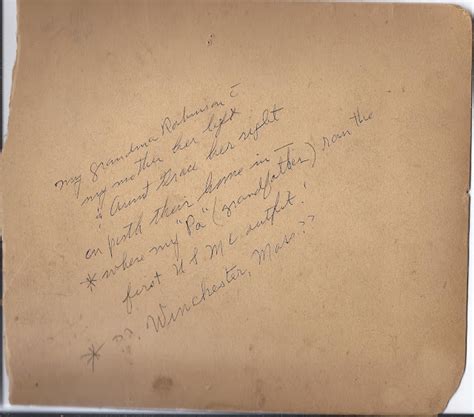 My Grandma Robinson c̄
my mother her left
& Aunt Grace her right
on porch their home in —
* where my "Pa" (grandfather) ran the
first U S M C outfit!
* ?? Winchester, Mass.??